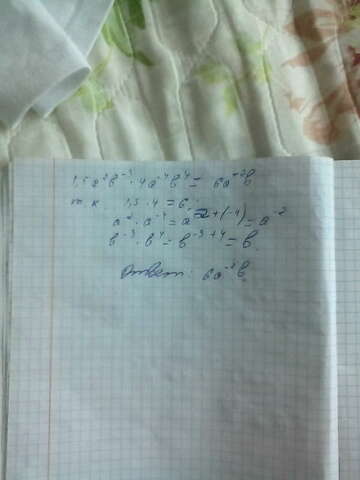 1,5a²b⁻³ · 4a⁻⁴b⁴ = 6a⁻²b
т.к 1,5 · 4 = 6
a² · a⁻⁴ = a²⁺⁽⁻⁴⁾ = a⁻²
b⁻³ · b⁴ = b⁻³⁺⁴ = b.
Ответ: 6a⁻²b.